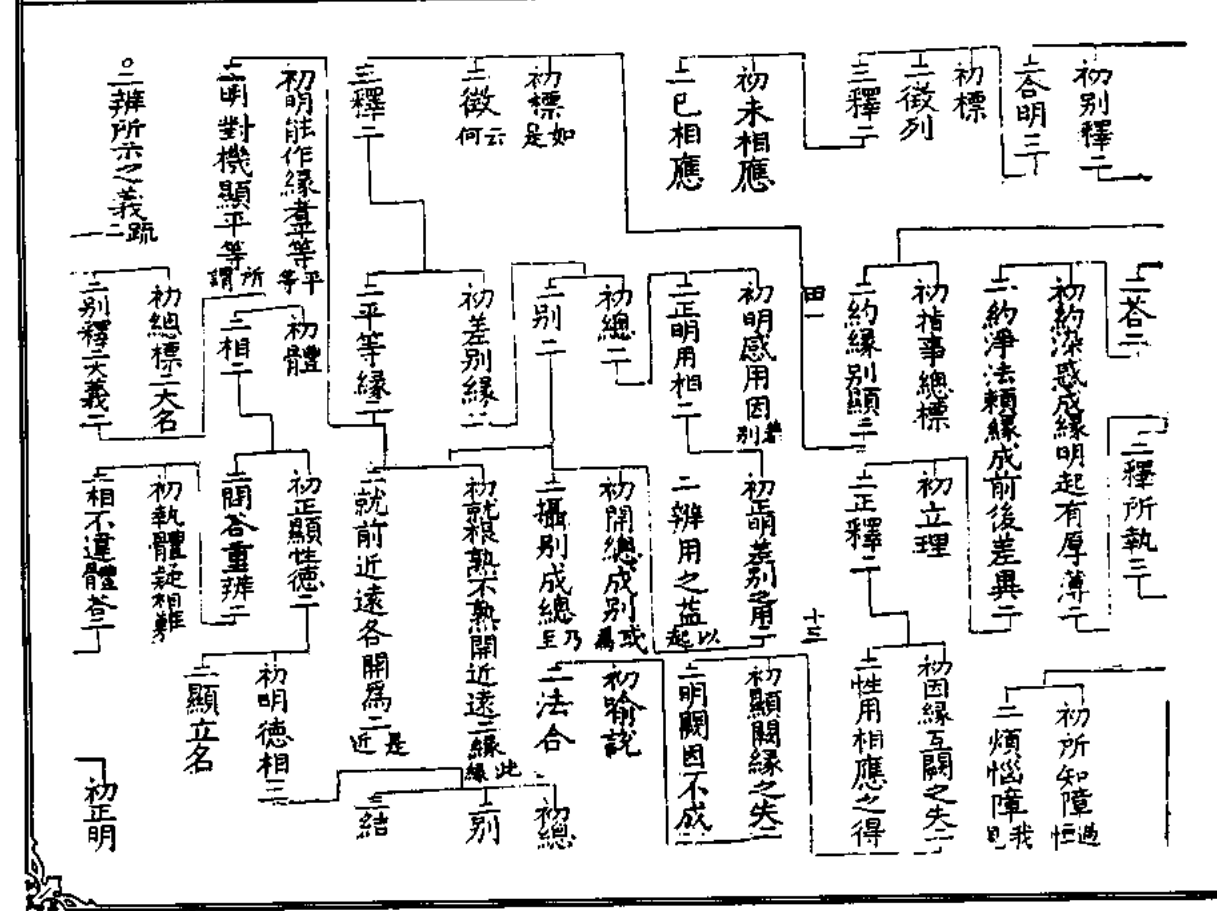 初别釋二
二合明三
初標
二徵列
三釋二
初未相應
二已相應
初標如是
二徵云何
三釋二
初明能作緣者平等平等
二明對機顯平等所謂
○二辨所示之義二疏
二荅二
初約深惑成緣明起有厚薄二
二約淨法賴緣成前後差異二
初指事總標
二約緣别顯二
田一
初明感用因若别
二正明用相二
初總二
二别二
初差别緣二
二平等緣二
初體
二相二
初總標二大名
二别釋二大義二
二釋所執三
初立理
二正釋二
十三
初正明差别之用二
二辨用之益以起
初開總成别或爲
二攝别成總乃至
初就根熟不熟開近遠二緣此緣
二就前近遠各開爲二是近
初正顯性德二
二問荅重辨二
初執體疑相難
二相不違體荅二
初所知障過恒
二煩惱障我見
初因緣互闕之失二
二性用相應之得
初顯闕緣之失二
二明闕因不成
初喻說
二法合
初總
二别
三結
初明德相三
二顯立名
初正明